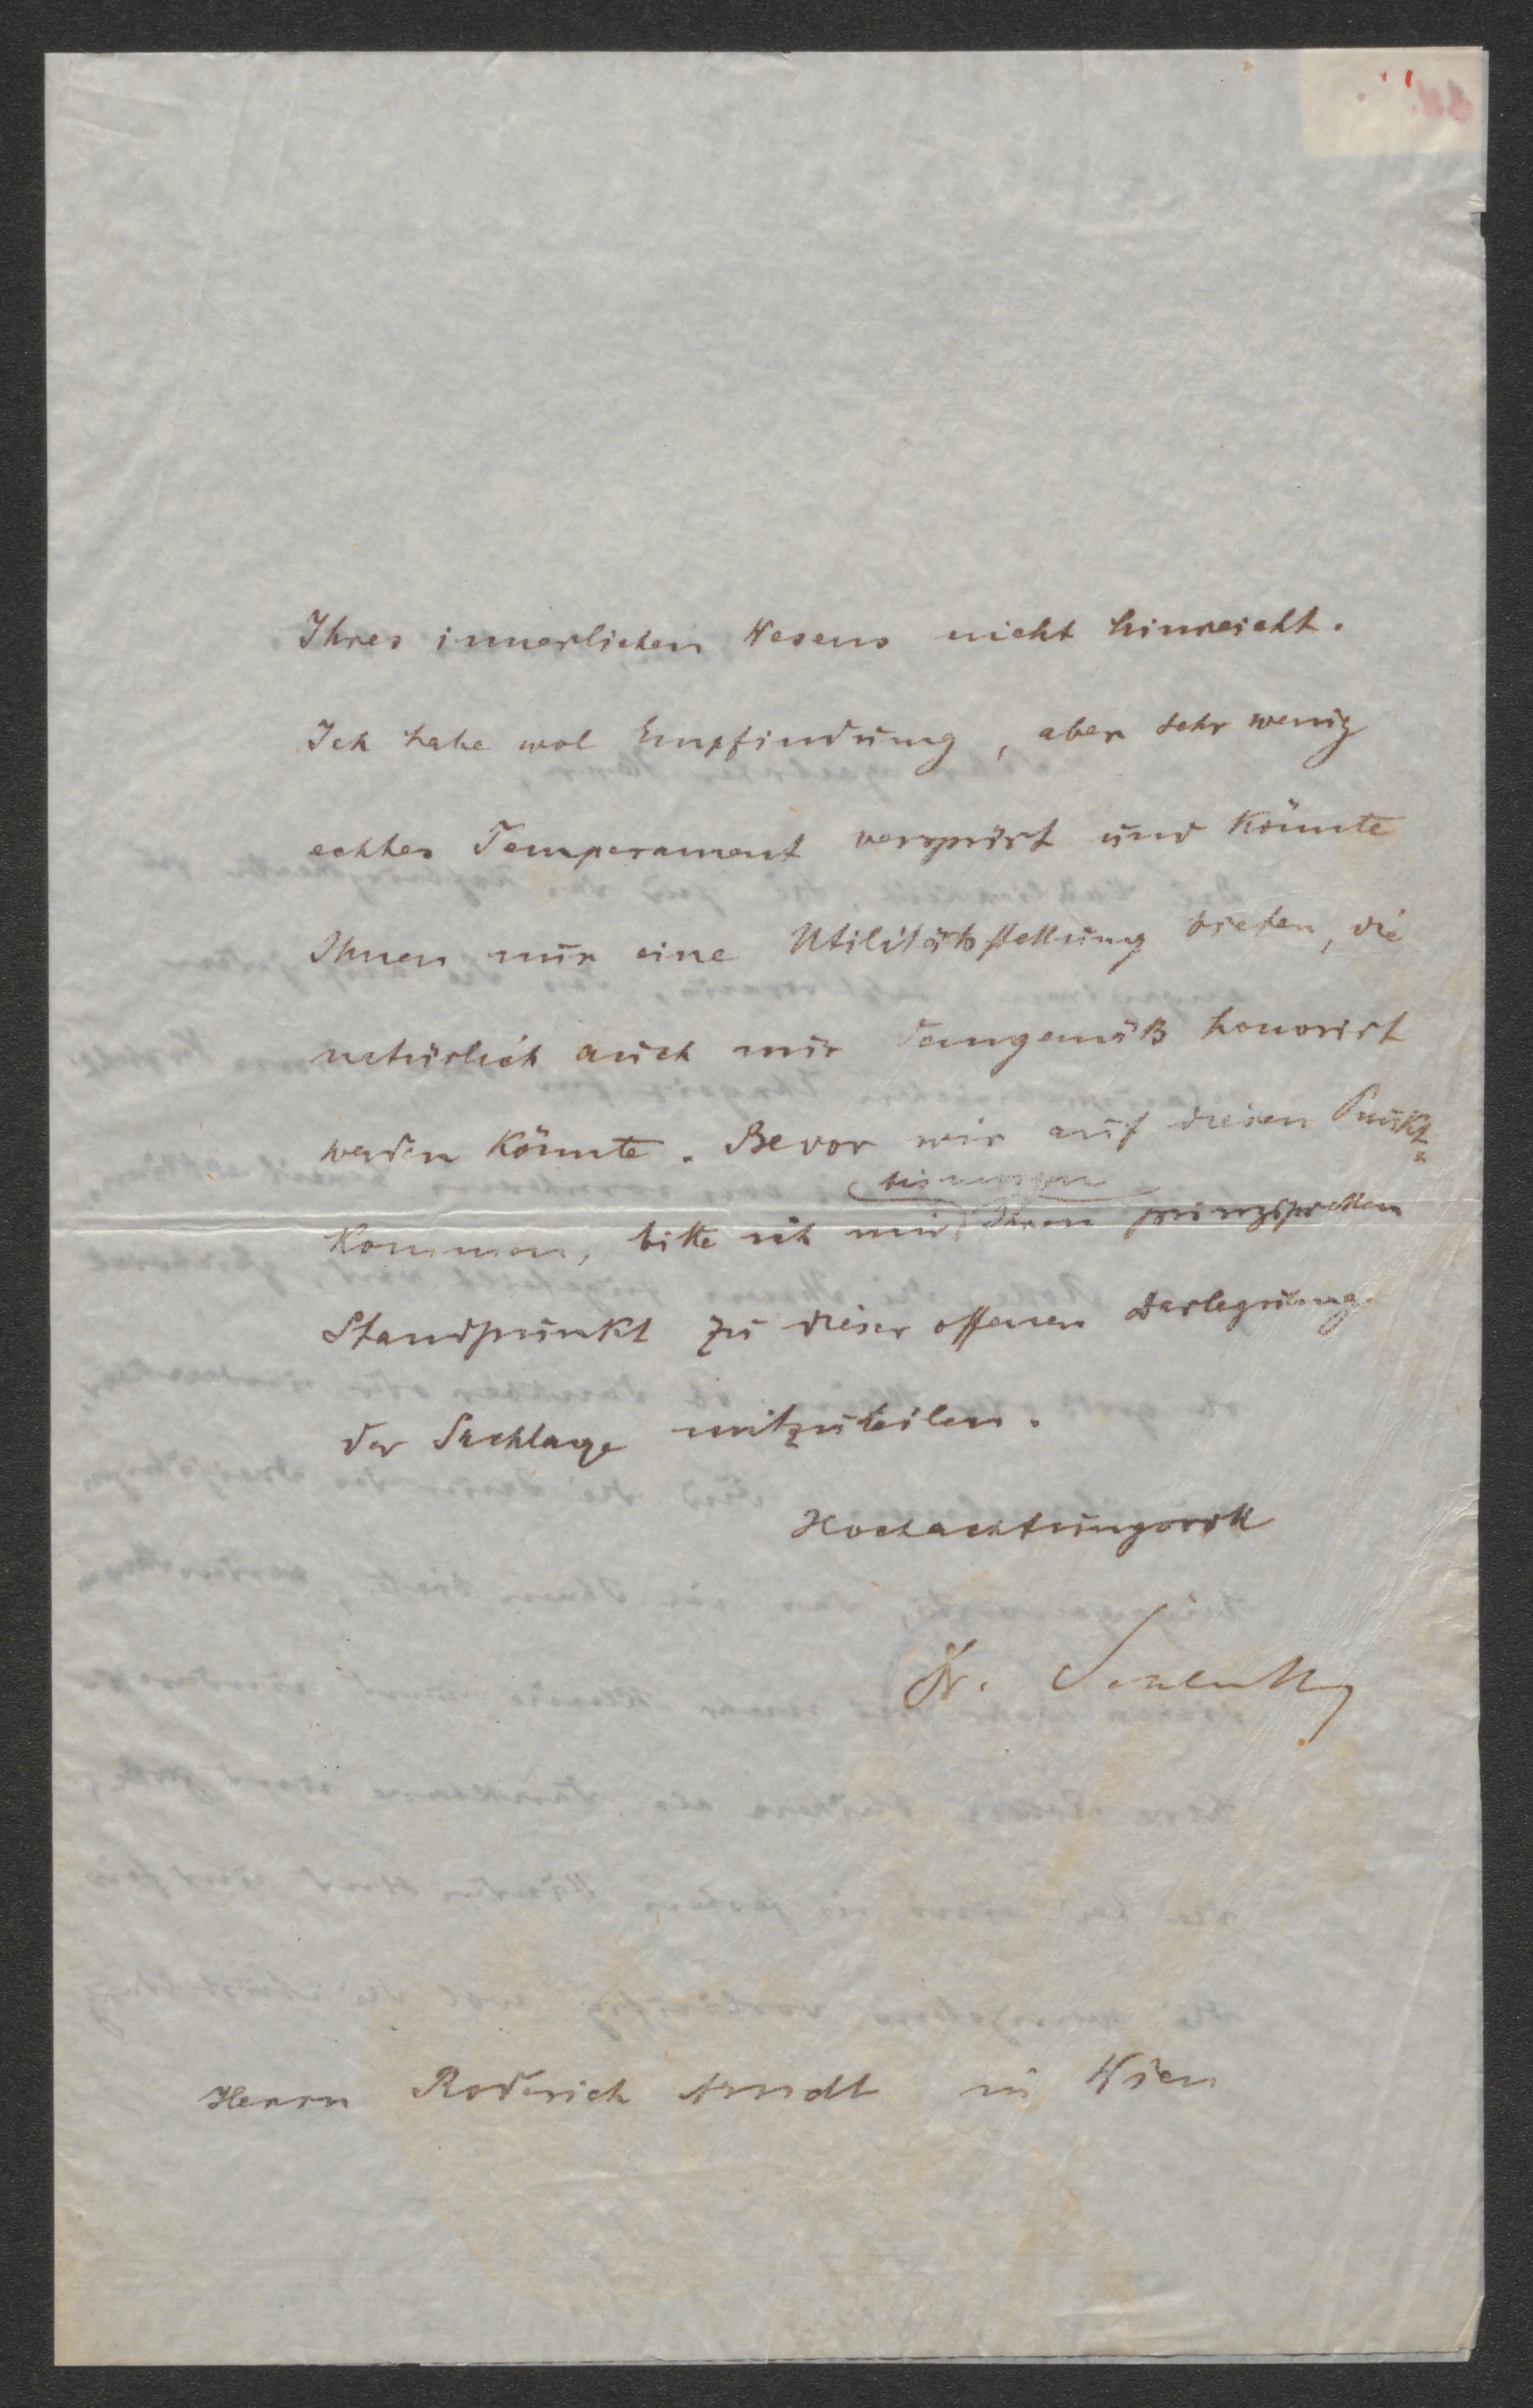 Ihres innerlichen Wesens nicht hinreicht.
Ich habe wol Empfindung, aber sehr wenig
echtes Temperament verspürt und könnte
Ihnen nur eine Utilitätsstellung bieten, die
natürlich auch nur demgemäß honorirt
werden könnte. Bevor wir auf diesen Punkt
bis morgen
kommen, bitte ich mir Ihren prinzipiellen
Standpunkt zu dieser offenen Darlegung
der Sachlage mitzuteilen.
Hochachtungsvoll
Dr. Schlenther
Herrn Roderich Arndt in Wien